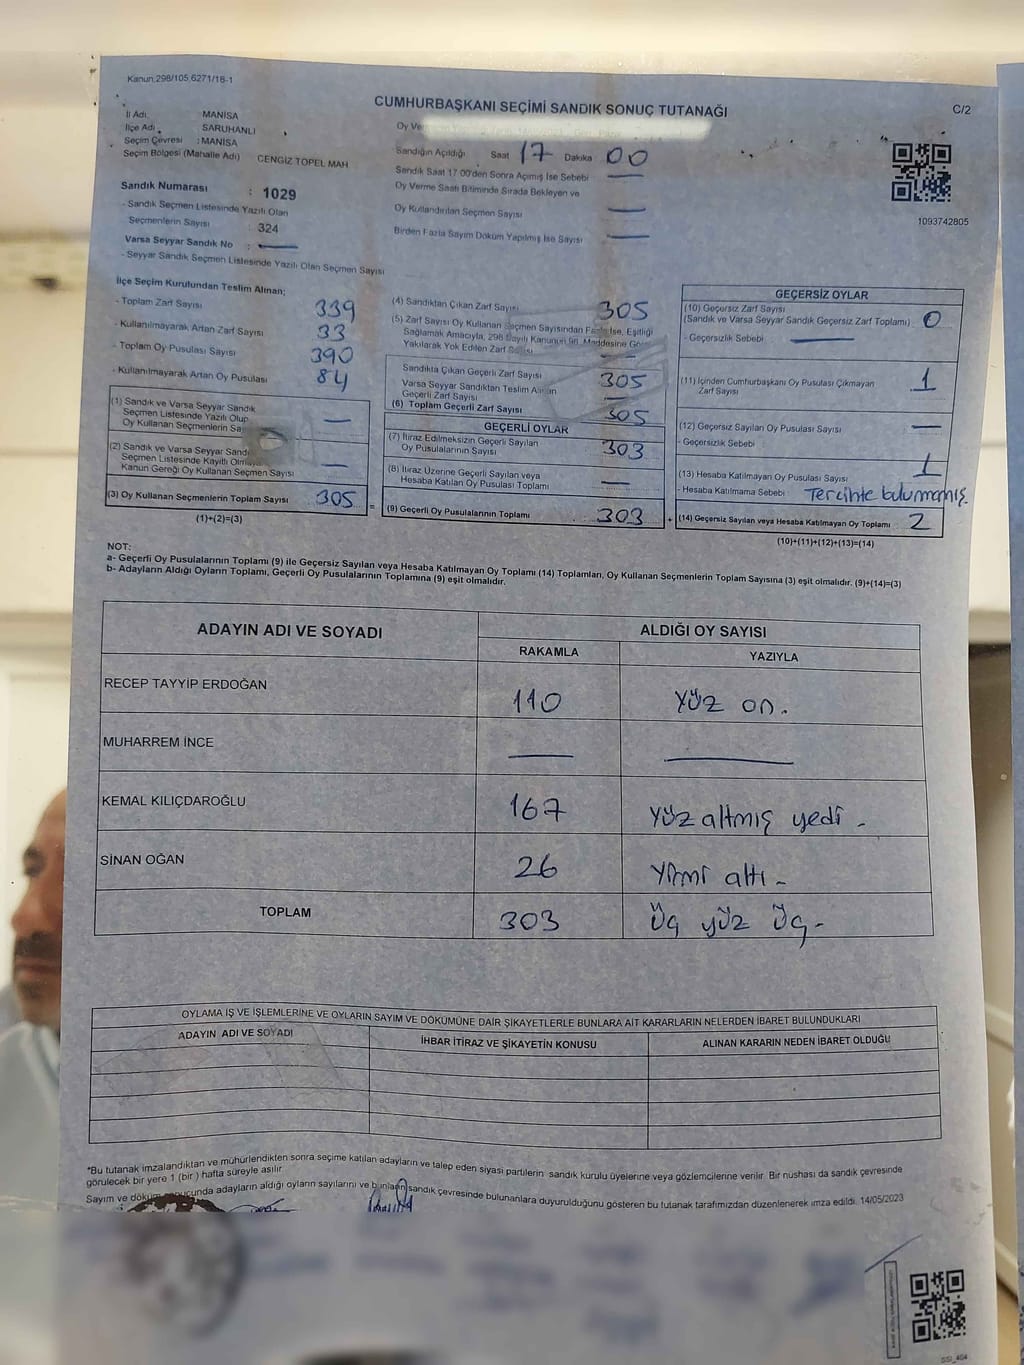 Kanun,298/105,6271/18-1
CUMHURBAŞKANI SEÇİMİ SANDIK SONUÇ TUTANAĞI
C/2
İl Adı : MANİSA
İlçe Adı : SARUHANLI
Seçim Çevresi : MANİSA
Seçim Bölgesi (Mahalle Adı) CENGİZ TOPEL MAH
Sandık Numarası : 1029
- Sandık Seçmen Listesinde Yazılı Olan
Seçmenlerin Sayısı : 324
Varsa Seyyar Sandık No : —
- Seyyar Sandık Seçmen Listesinde Yazılı Olan Seçmen Sayısı
Oy
Sandığın Açıldığı Saat 17 Dakika 00
Sandık Saat 17.00'den Sonra Açımış İse Sebebi —
Oy Verme Saati Bitiminde Sırada Bekleyen ve
Oy Kullandırılan Seçmen Sayısı —
Birden Fazla Sayım Döküm Yapılmış İse Sayısı —
1093742805
İlçe Seçim Kurulundan Teslim Alınan;
- Toplam Zarf Sayısı 339
- Kullanılmayarak Artan Zarf Sayısı 33
- Toplam Oy Pusulası Sayısı 390
- Kullanılmayarak Artan Oy Pusulası 84
(1) Sandık ve Varsa Seyyar Sandık
Seçmen Listesinde Yazılı Olup
Oy Kullanan Seçmenlerin —
(2) Sandık ve Varsa Seyyar
Seçmen Listesinde Kayıtlı
Kanun Gereği Oy Kullanan Seçmen Sayısı —
(3) Oy Kullanan Seçmenlerin Toplam Sayısı 305
(1)+(2)=(3)
(4) Sandıktan Çıkan Zarf Sayısı 305
(5) Zarf Sayısı Oy Kullanan Seçmen Sayısından Fazla İse, Eşitliği
Sağlamak Amacıyla, 298 Sayılı Kanunun 98. Maddesine
Yakılarak Yok Edilen Zarf Sayısı —
Sandıkta Çıkan Geçerli Zarf Sayısı 305
Varsa Seyyar Sandıktan Teslim Alınan
Geçerli Zarf Sayısı —
(6) Toplam Geçerli Zarf Sayısı 305
GEÇERLİ OYLAR
(7) İtiraz Edilmeksizin Geçerli Sayılan
Oy Pusulalarının Sayısı 303
(8) İtiraz Üzerine Geçerli Sayılan veya
Hesaba Katılan Oy Pusulası Toplamı —
= (9) Geçerli Oy Pusulalarının Toplamı 303
GEÇERSİZ OYLAR
(10) Geçersiz Zarf Sayısı
(Sandık ve Varsa Seyyar Sandık Geçersiz Zarf Toplamı) 0
- Geçersizlik Sebebi —
(11) İçinden Cumhurbaşkanı Oy Pusulası Çıkmayan
Zarf Sayısı 1
(12) Geçersiz Sayılan Oy Pusulası Sayısı —
- Geçersizlik Sebebi
(13) Hesaba Katılmayan Oy Pusulası Sayısı 1
- Hesaba Katılmama Sebebi Tercihte bulunmamış.
+ (14) Geçersiz Sayılan veya Hesaba Katılmayan Oy Toplamı 2
(10)+(11)+(12)+(13)=(14)
NOT:
a- Geçerli Oy Pusulalarının Toplamı (9) ile Geçersiz Sayılan veya Hesaba Katılmayan Oy Toplamı (14) Toplamları, Oy Kullanan Seçmenlerin Toplam Sayısına (3) eşit olmalıdır. (9)+(14)=(3)
b- Adayların Aldığı Oyların Toplamı, Geçerli Oy Pusulalarının Toplamına (9) eşit olmalıdır.
ADAYIN ADI VE SOYADI ALDIĞI OY SAYISI
RAKAMLA YAZIYLA
RECEP TAYYİP ERDOĞAN 110 Yüz on.
MUHARREM İNCE — —
KEMAL KILIÇDAROĞLU 167 Yüz altmış yedi -
SİNAN OĞAN 26 Yirmi altı -
TOPLAM 303 Üç yüz üç -
OYLAMA İŞ VE İŞLEMLERİNE VE OYLARIN SAYIM VE DÖKÜMÜNE DAİR ŞİKAYETLERLE BUNLARA AİT KARARLARIN NELERDEN İBARET BULUNDUKLARI
ADAYIN ADI VE SOYADI İHBAR İTİRAZ VE ŞİKAYETİN KONUSU ALINAN KARARIN NEDEN İBARET OLDUĞU
*Bu tutanak imzalandıktan ve mühürlendikten sonra seçime katılan adayların ve talep eden siyasi partilerin sandık kurulu üyelerine veya gözlemcilerine verilir. Bir nüshası da sandık çevresinde
görülecek bir yere 1 (bir) hafta süreyle asılır.
Sayım ve döküm sonucunda adayların aldığı oyların sayılarını ve bunların sandık çevresinde bulunanlara duyurulduğunu gösteren bu tutanak tarafımızdan düzenlenerek imza edildi. 14/05/2023